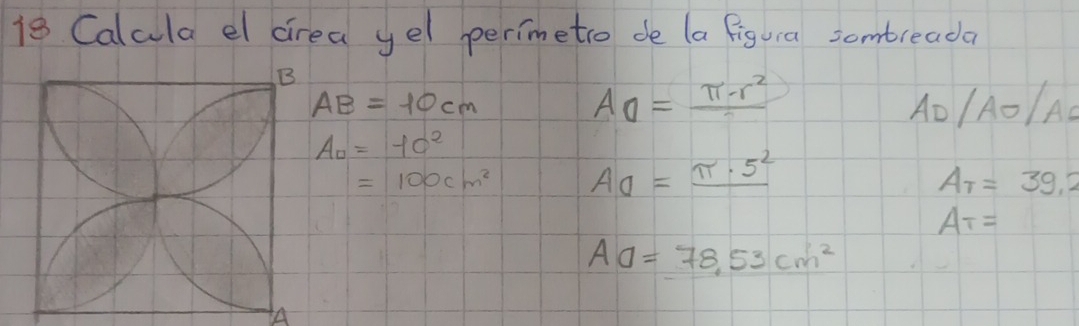 18 Calcula el área y el perímetro de la figura sombreada
B
A
AB = 10cm
A□ = 10²
= 100cm²
A▯ = π·r²
A▯ = π·5²
A▯ = 78,53 cm²
A▯/A○/A
A_T = 39,2
A_T =